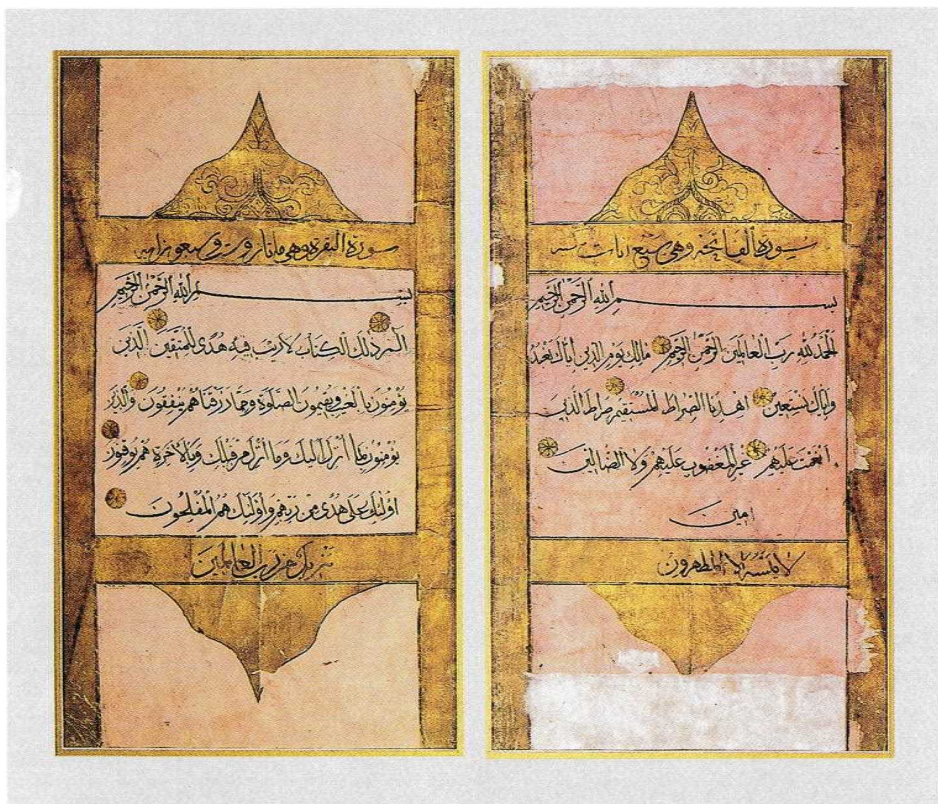 سورة الفاتحة وهي سبع ايات
بسم الله الرحمن الرحيم
الحمد لله رب العالمين الرحمن الرحيم مالك يوم الدين اياك نعبد
واياك نستعين اهدنا الصراط المستقيم صراط الذين
انعمت عليهم غير المغضوب عليهم ولا الضالين
امين
لا يمسه الا المطهرون
سورة البقرة وهي مايتان وست وسبعون اية
بسم الله الرحمن الرحيم
الم ذلك الكتاب لا ريب فيه هدى للمتقين الذين
يؤمنون بالغيب ويقيمون الصلوة ومما رزقناهم ينفقون والذين
يؤمنون بما أنزل اليك وما أنزل من قبلك وبالآخرة هم يوقنون
اولئك على هدى من ربهم واولئك هم المفلحون
تنزيل من رب العالمين